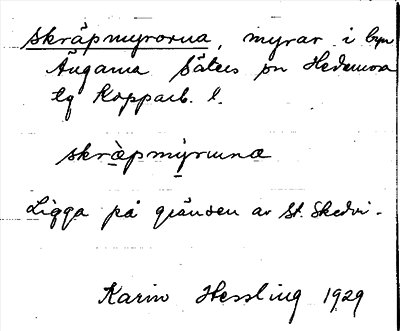 Skräpmyrorna, myrar i byn
Ängarna Säters sn Hedemora
tg Kopparb. l.
skræ̀pmỳruna
Ligga på gränsen av St. Skedvi.
Karin Hessling 1929